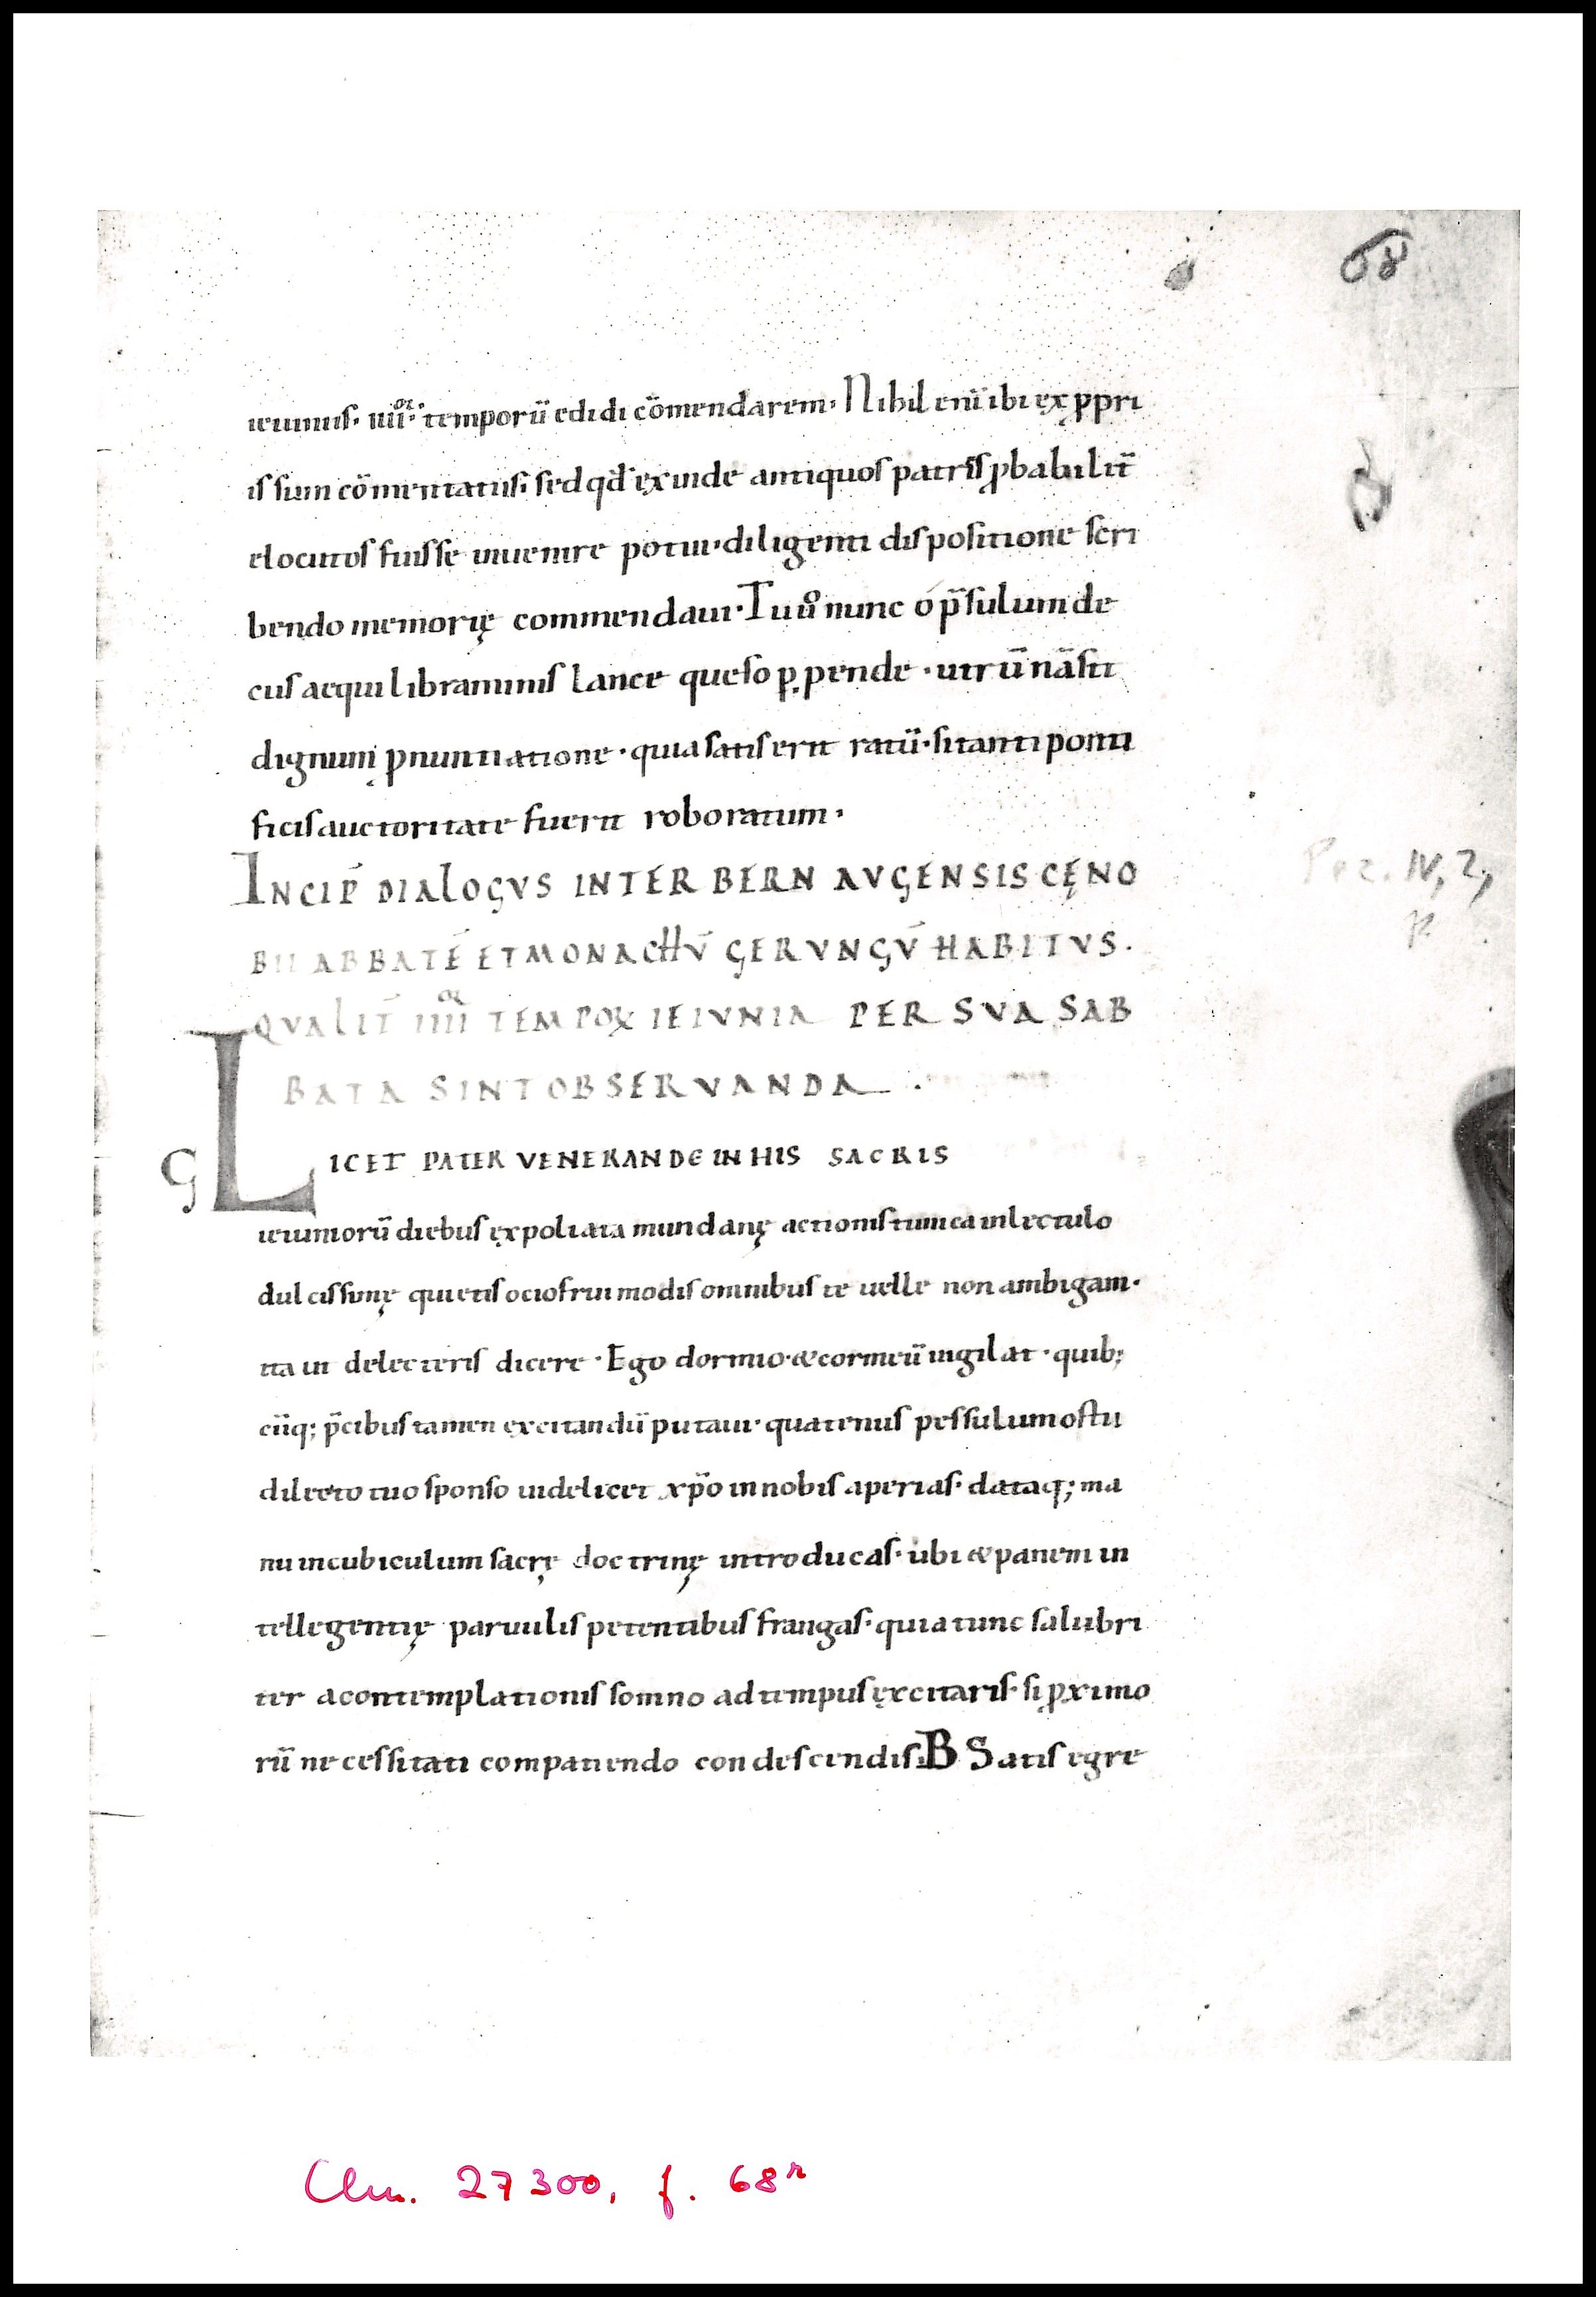 68
ieiuniis· iiiiºʳ· temporū edidi cōmendarem· Nihil eni̅ ibi ęx ꝓpri
is sum cōmentatus· sed qd̅ ęxinde antiquos patrȩs ꝓbabilit̅
elocutos fuisse inuenire potui· diligenti dispositione scri
bendo memorię commendaui· Tu u̅o nunc ó p̅sulum de
cus aequilibraminis lance queso ꝑpende · utrū nā sit
dignum ꝓnuntiatione · quia satis erit ratū· si tanti ponti
ficis auctoritate fuerit roboratum·
INCIP̅ DIALOGVS INTER BERN AVGENSIS CĘNO
BII ABBATĒ ET MONACHV̅ GERVNGV̅ HABITVS.
QVALIT̅ IIIIºʳ TEMPOꝜ IEIVNIA PER SVA SAB
BATA SINT OBSERVANDA .
G LICET PATER VENERANDE IN HIS SACRIS
ieiuniorū diebus ęxpoliata mundanę actionis tunica in lectulo
dulcissimę quietis ocio frui modis omnibus te uelle non ambigam·
ita ut delecteris dicere · Ego dormio· & cor meū uigilat · quib;
cūq; p̅cibus tamen excitandū putaui· quatenus pessulum ostii
dilecto tuo sponso uidelicet xp̅o in nobis aperias· dataq; ma
nu in cubiculum sacrę doctrinę introducas· ubi & panem in
tellegentię paruulis petentibus frangas· quia tunc salubri
ter a contemplationis somno ad tempus ęxcitaris· si ꝓximo
rū necessitati compatiendo condescendis· B Satis egre
Pez. IV, 2,
p.
Clm. 27300, f. 68ʳ